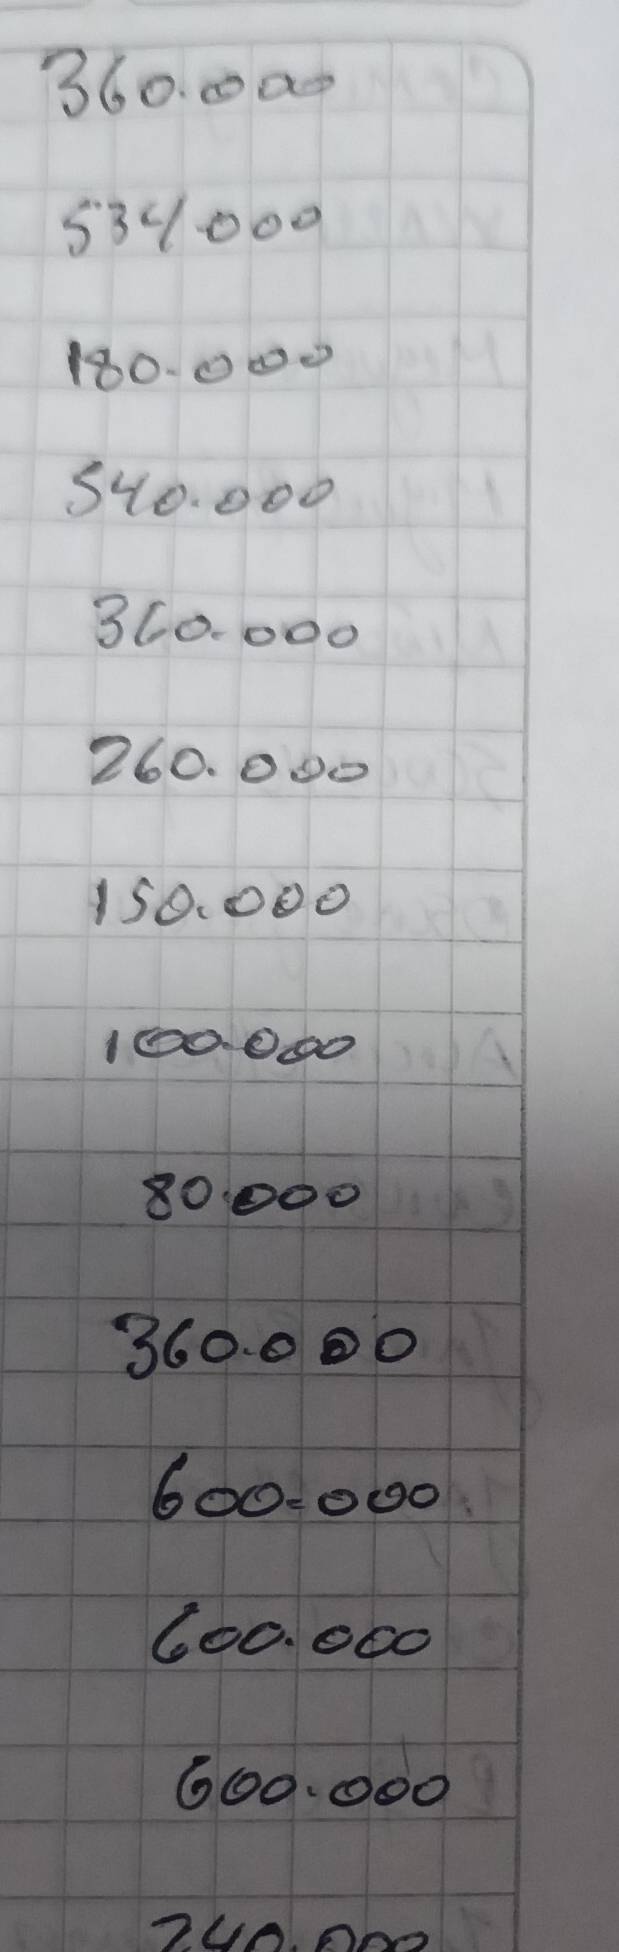 360.000
534.000
180.000
540.000
360.000
260.000
150.000
100.000
80.000
360.000
600.000
600.000
600.000
240.000